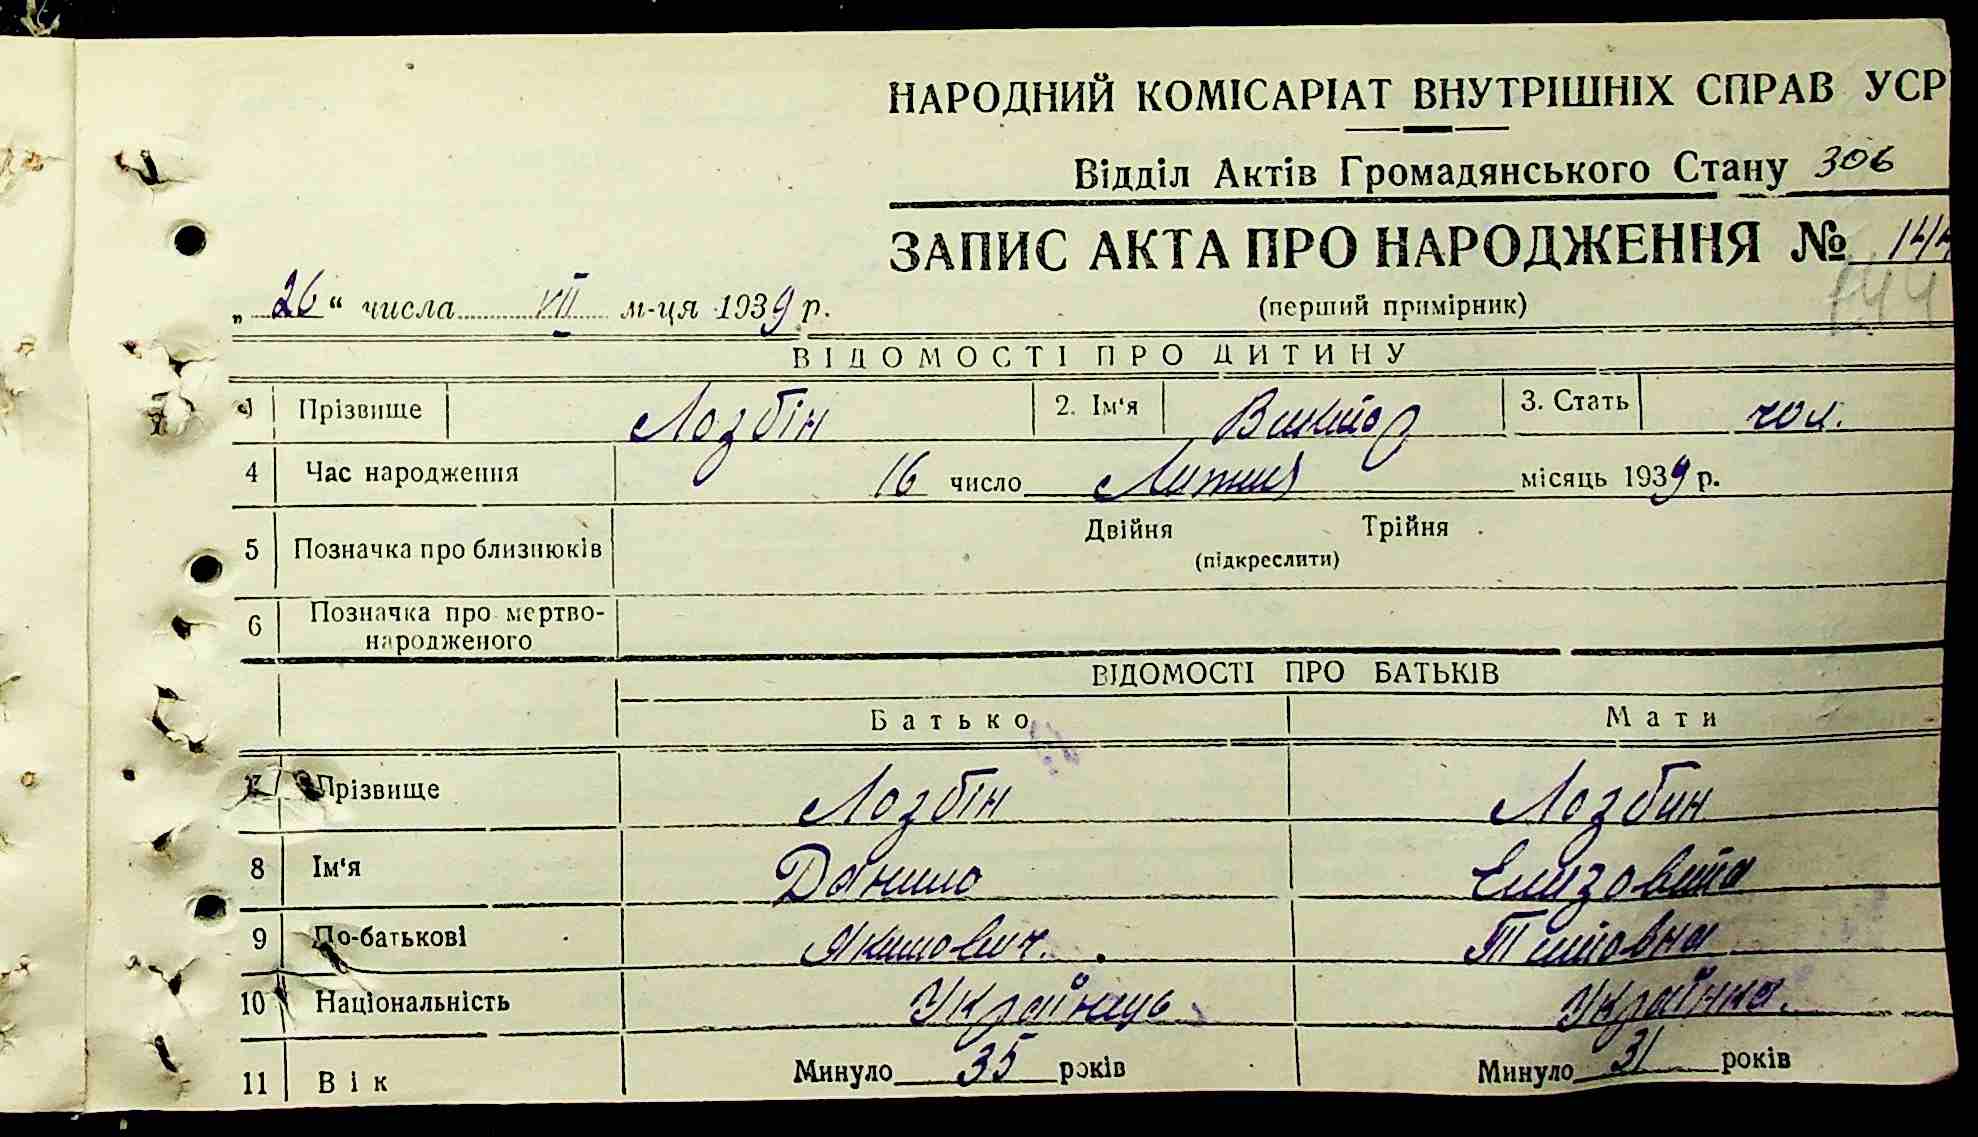 НАРОДНИЙ КОМІСАРІАТ ВНУТРІШНІХ СПРАВ УСР
Відділ Актів Громадянського Стану 306
ЗАПИС АКТА ПРО НАРОДЖЕННЯ № 144
„ 26 “ числа VII м-ця 1939 р.
(перший примірник)
144
ВІДОМОСТІ ПРО ДИТИНУ
1 Прізвище Лозбін 2. Ім‘я Віктор 3. Стать чол.
4 Час народження 16 число Липня місяць 1939 р.
5 Позначка про близнюків Двійня Трійня
(підкреслити)
6 Позначка про мертво-
народженого
ВІДОМОСТІ ПРО БАТЬКІВ
Батько Мати
7 Прізвище Лозбін Лозбин
8 Ім‘я Данило Елизовита
9 По-батькові Якимович. Титовна
10 Національність Українець Українка.
11 Вік Минуло 35 років Минуло 31 років